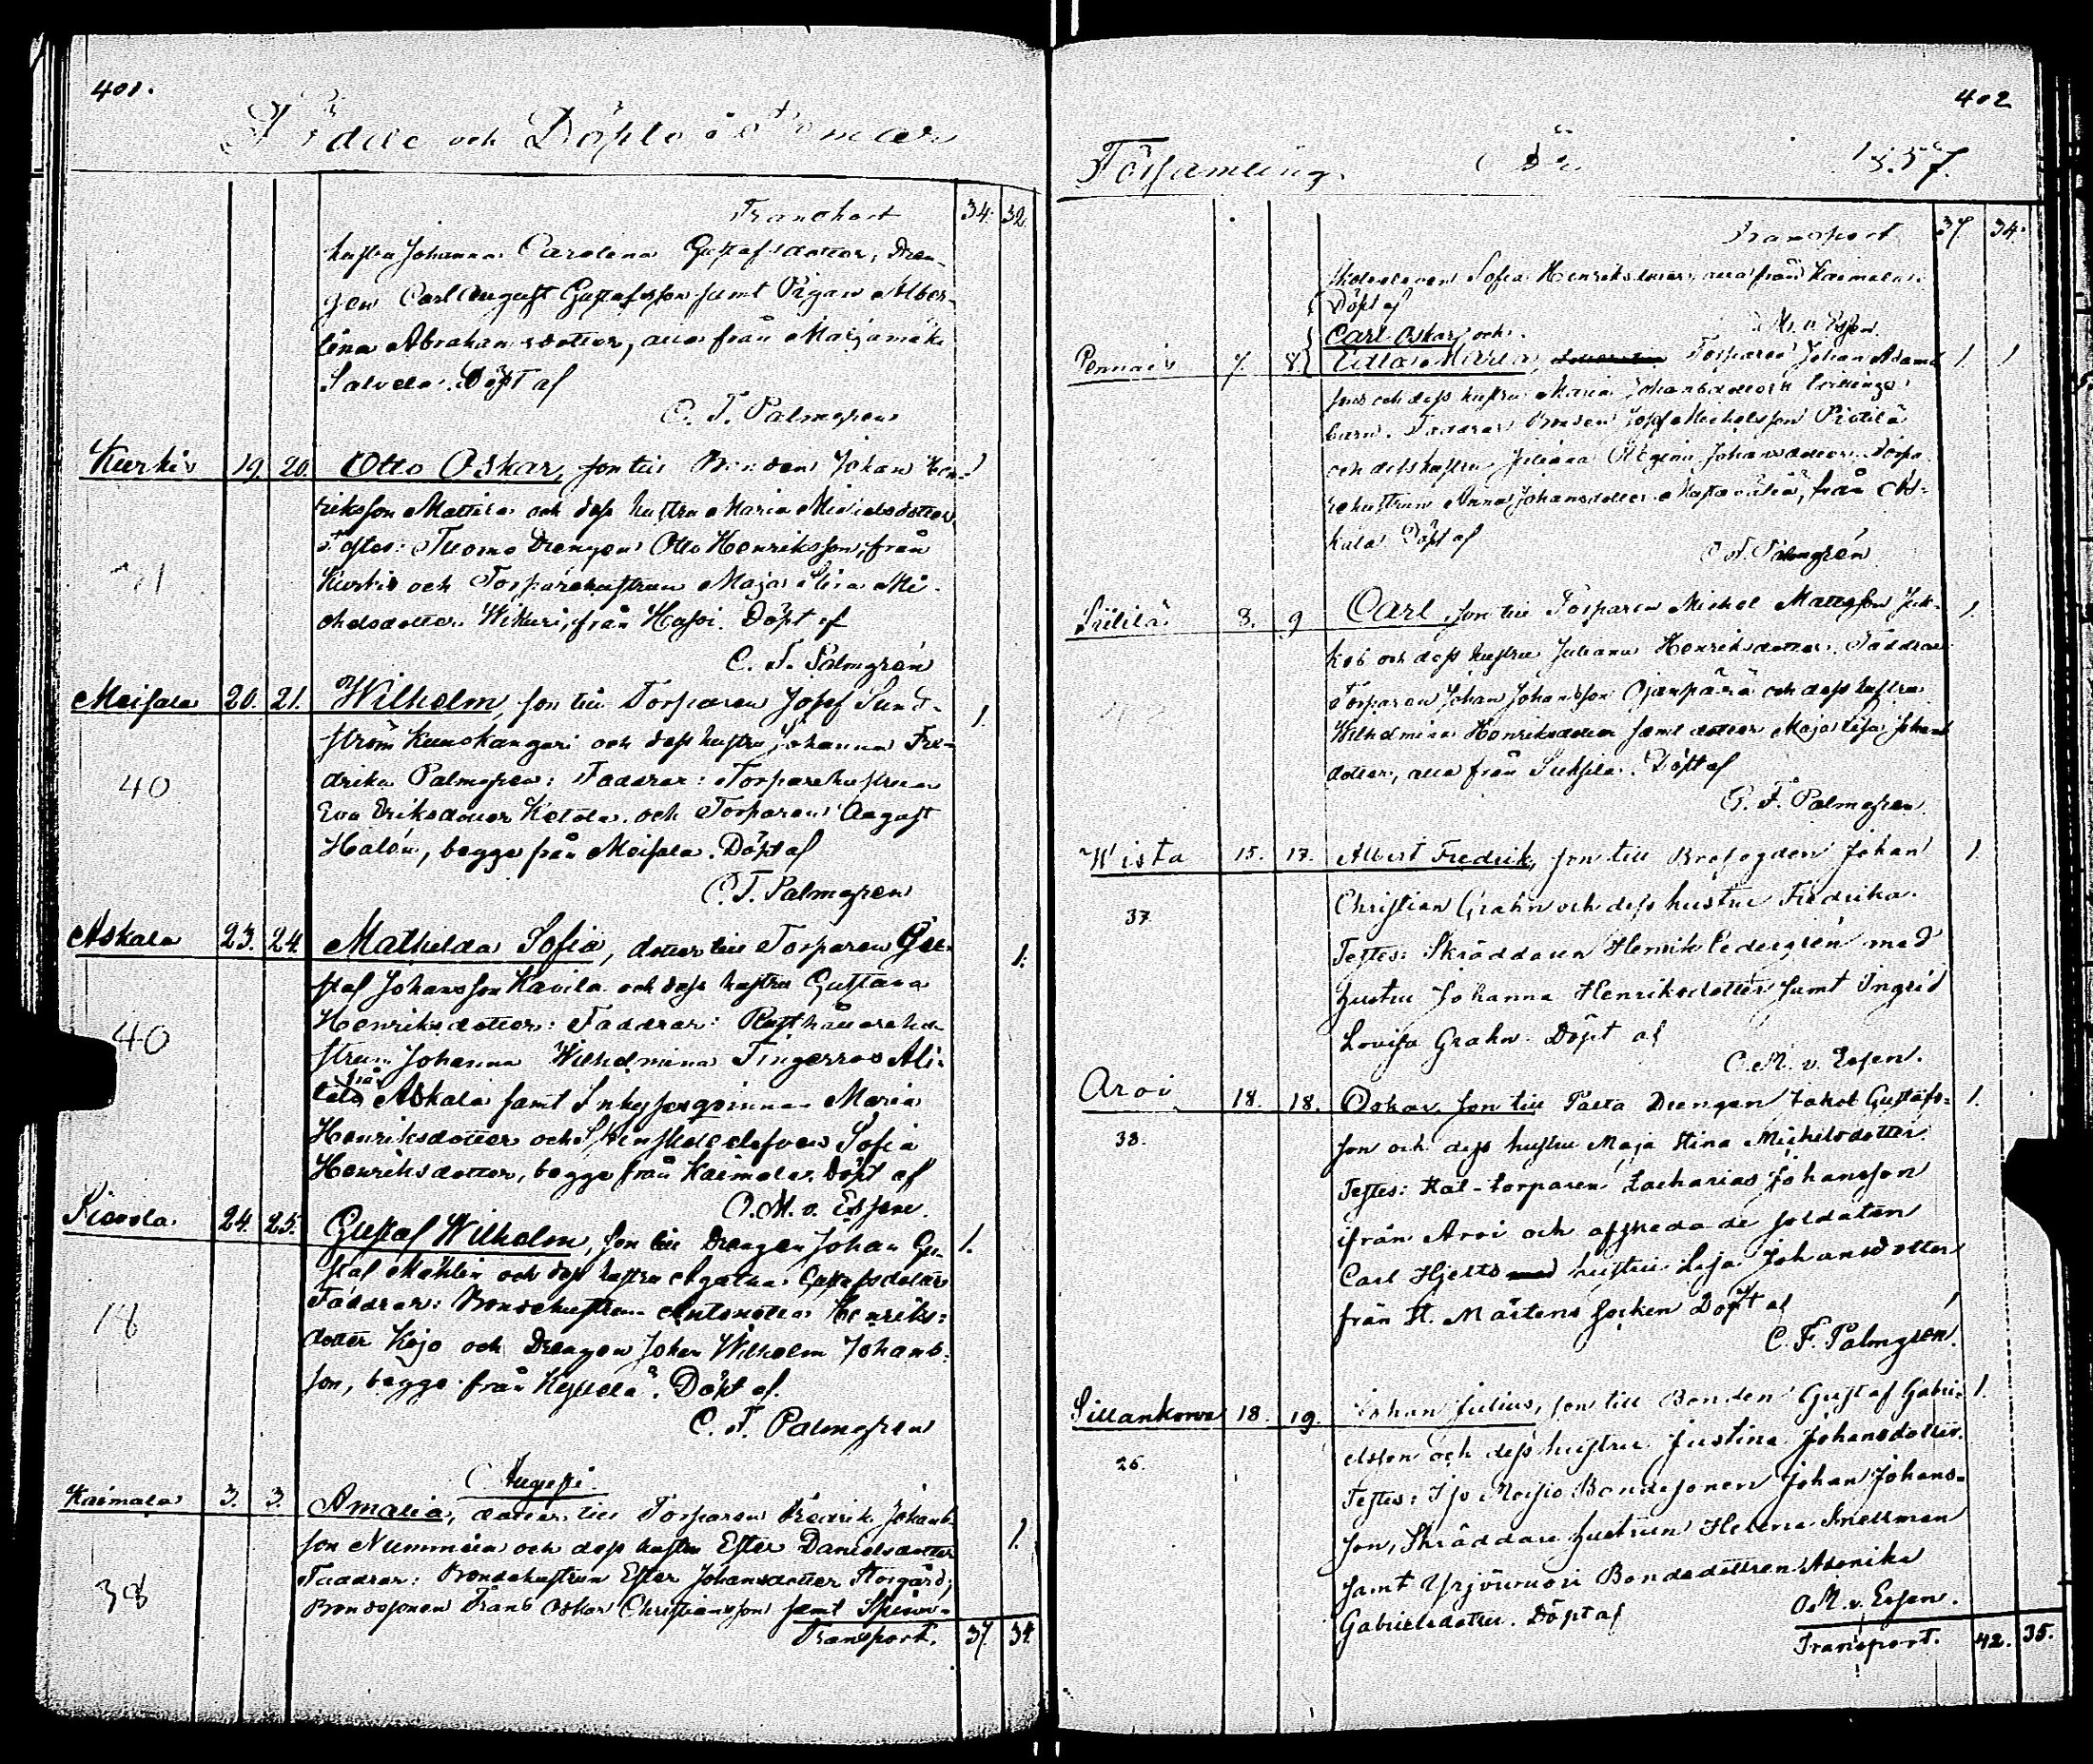 401.
Födde och Döpte i Pemar
Transport 34. 32.
hustru Johanna Carolena Gustafsdotter, Dren-
gen Carl August Gustafsson samt Pigan Alber-
tina Abrahamsdotter, alla från Marjamäki
Salvela. Döpt af
C. F. Palmgren
Kurkis 19. 20. Otto Oskar, son till Bonden Johan Hen- 1
riksson Mattila och dess hustru Maria Michelsdotter
Testes: Tuomo Drengen Otto Henriksson, från
Kurkis och Torparehustrun Maja Stina Mi-
chelsdotter Wikuri, från Hasoi. Döpt af
C. F. Palmgrén
Meisala 20. 21. Wilhelm, son till Torparen Josef Sund- 1.
ström Kunskangari och dess hustru Johanna Fre-
drika Palmgren: Faddrar: Torparehustrun
40
Eva Eriksdotter Ketola och Torparen August
Halén, begge från Meisala. Döpt af
C. F. Palmgren
Askala 23. 24. Mathilda Sofia, dotter till Torparen Gu- 1.
staf Johansson Kavila och dess hustru Gustava
Henriksdotter: Faddrar: Rusthållarehu-
40
strun Johanna Wilhelmina Tingerroos Ali-
talo från Askala samt Inhysesqvinnan Maria
Henriksdotter och Skolelefven Sofia
Henriksdotter, begge från Kaimala. Döpt af
O. M. v. Essen.
24. 25. Gustaf Wilhelm, son till Drengen Johan Gu- 1.
staf Mählin och dess hustru Agatha Gustafsdotter
Faddrar: Bondehustrun Antonetta Henriks-
18
dotter Kojo och Drengen Johan Wilhelm Johans-
son, begge från Kyttelä. Döpt af.
C. F. Palmgren
Augusti.
Kaimala 3. 3. Amalia, dotter till Torparen Fredrik Johans-
son Numminen och dess hustru Ester Danielsdotter 1.
Faddrar: Bondehustrun Ester Johansdotter Storgård,
38
Bondesonen Frans Oskar Christiansson samt
Transport. 37. 34.
402
Församling År 1857.
Transport 37. 34.
Skoleleven Sofia Henriksdotter, alla från Kaimala.
Döpt af
M. v. Essen
Carl Oskar, och
Pennais 7. 8. Ulla Maria, Torparen Johan Adams- 1. 1
sons och dess hustru Maria Johansdotters tvillinge-
barn. Faddrar Bonden Josef Michelsson Pietilä
och dess hustru Juliana Regina Johansdotter. Torpa-
rehustrun Anna Johansdotter, från As-
kala Döpt af
C. F. Palmgrén
8. 9 Carl, son till Torparen Michel Mattsson Jak- 1.
kob och dess hustru Juliana Henriksdotter. Faddrar
Torparen Johan Johansson Ojanpärä och dess hustru
Wilhelmina Henriksdotter samt dotter Maja Lisa Johans-
dotter, alla från Suksela. Döpt af
C. F. Palmgren
Wista 15. 17. Albert Fredrik, son till Brofogden Johan 1.
Christian Grahn och dess hustru Fredrika.
37
Testes: Skräddaren Henrik Cedergrén med
hustru Johanna Henriksdotter samt Ingrid
Lovisa Grahn. Döpt af
O. M. v. Essen.
Aroi 18. 18. Oskar, son till Drengen Jakob Gustafs- 1.
38.
son och dess hustru Maja Stina Michelsdotter.
Testes: Kal-torparen Zacharias Johansson
ifrån Aroi och afskedade soldaten
Carl Hjelts hustru Lisa Johansdotter
från St. Mårtens socken Döpt af
C. F. Palmgrén.
Sillankorva 18. 19. Johan Julius, son till Bonden Gustaf Gabri- 1.
elsson och dess hustru Justina Johansdotter.
26.
Testes: Iso Moisio Bondesonen Johan Johans-
son, Skräddare hustrun Helena Snellman
samt Yrjönvuori Bondedottren
Gabrielsdotter. Döpt af O. M. v. Essen.
Transport. 42. 35.